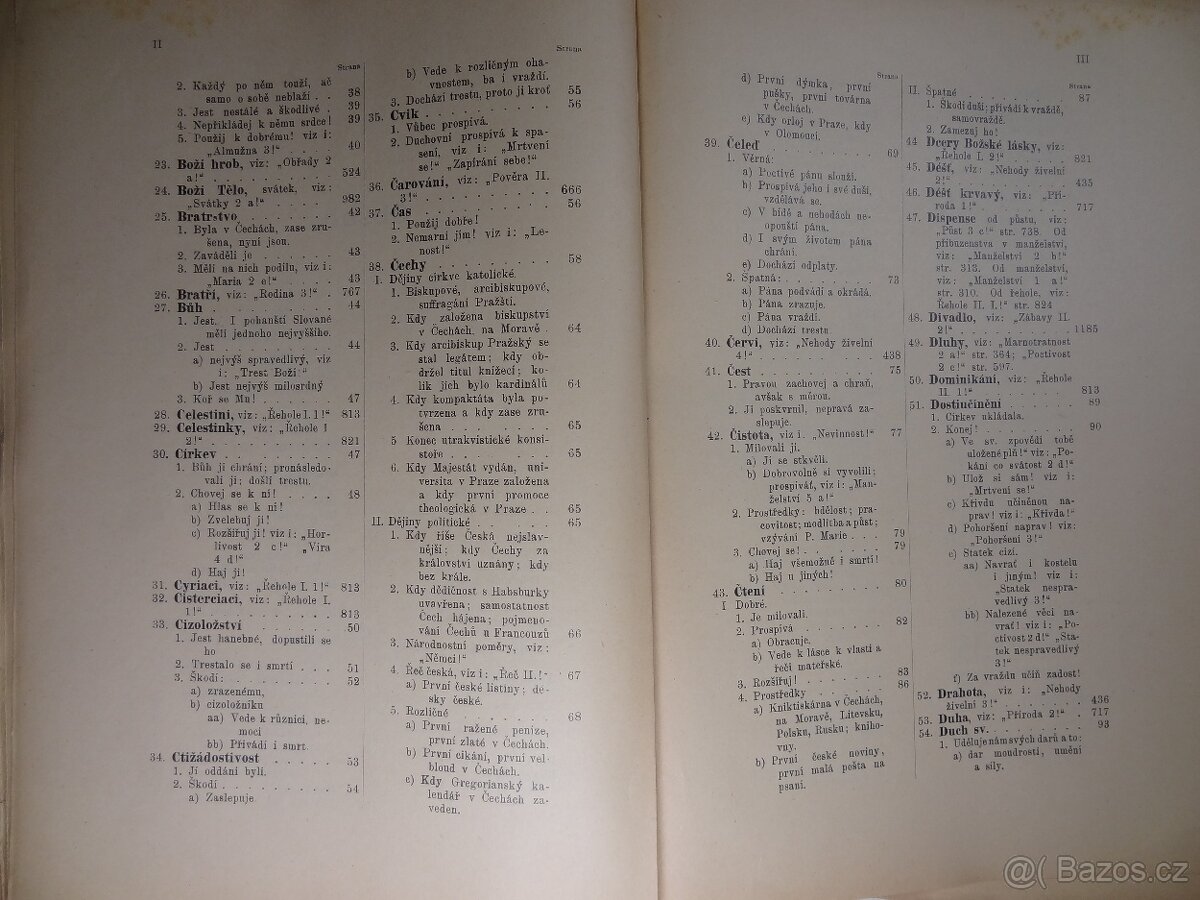 II
Strana
2. Každý po něm touží, ač
samo o sobě neblaží . . 38
3. Jest nestálé a škodlivé . 39
4. Nepřikládej k němu srdce! 39
5. Použij k dobrému! viz i:
„Almužna 3!“ . . . . 40
23. Boží hrob, viz: „Obřady 2
a!“ . . . . . . . . . 524
24. Boží Tělo, svátek, viz:
„Svátky 2 a!“ . . . . 982
25. Bratrstvo . . . . . . 42
1. Byla v Čechách, zase zru-
šena, nyní jsou.
2. Zaváděli je . . . . . 43
3. Měli na nich podílu, viz i:
„Maria 2 e!“ . . . . 43
26. Bratři, viz: „Rodina 3!“ . 767
27. Bůh . . . . . . . . . 44
1. Jest. I pohanští Slované
měli jednoho nejvyššího.
2. Jest . . . . . . . . 44
a) nejvýš spravedlivý, viz
i: „Trest Boží!“
b) Jest nejvýš milosrdný
3. Koř se Mu! . . . . . 47
28. Celestini, viz: „Řehole I. 1!“ 813
29. Celestinky, viz: „Řehole I
2!“ . . . . . . . . . 821
30. Církev . . . . . . . . 47
1. Bůh ji chrání; pronásledo-
vali ji; došli trestu.
2. Chovej se k ní! . . . . 48
a) Hlas se k ní!
b) Zvelebuj ji!
c) Rozšiřuj ji! viz i: „Hor-
livost 2 c!“ „Víra
4 d!“
d) Haj ji!
31. Cyriaci, viz: „Řehole I. 1!“ 813
32. Cisterciaci, viz: „Řehole I.
1!“ . . . . . . . . . 813
33. Cizoložství . . . . . 50
1. Jest hanebné, dopustili se
ho
2. Trestalo se i smrtí . . . 51
3. Škodí: . . . . . . . . 52
a) zrazenému,
b) cizoložníku
aa) Vede k různici, ne-
moci
bb) Přivádí i smrt.
34. Ctižádostivost . . . . 53
1. Jí oddáni byli.
2. Škodí . . . . . . . . 54
a) Zaslepuje
Strana
b) Vede k rozličným oha-
vnostem, ba i vraždí.
3. Dochází trestu, proto ji kroť 55
35. Cvik . . . . . . . . . 56
1. Vůbec prospívá.
2. Duchovní prospívá k spa-
sení, viz i: „Mrtvení
se!“ „Zapírání sebe!“
36. Čarování, viz: „Pověra II.
3!“ . . . . . . . . . 666
37. Čas . . . . . . . . . 56
1. Použij dobře!
2. Nemarni jím! viz i: „Le-
nost!“
38. Čechy . . . . . . . . 58
I. Dějiny církve katolické.
1. Biskupové, arcibiskupové,
suffragáni Pražští.
2. Kdy založena biskupství
v Čechách, na Moravě . 64
3. Kdy arcibiskup Pražský se
stal legátem; kdy ob-
držel titul knížecí; ko-
lik jich bylo kardinálů 64
4. Kdy kompaktáta byla po-
tvrzena a kdy zase zru-
šena . . . . . . . . 65
5 Konec utrakvistické konsi-
stoře . . . . . . . . 65
6. Kdy Majestát vydán, uni-
versita v Praze založena
a kdy první promoce
theologická v Praze . . 65
II. Dějiny politické . . . . . 65
1. Kdy říše Česká nejslav-
nější; kdy Čechy za
království uznány; kdy
bez krále.
2. Kdy dědičnost s Habsburky
uvavřena; samostatnost
Čech hájena; pojmeno-
vání Čechů u Francouzů 66
3. Národnostní poměry, viz:
„Němci!“
4. Řeč česká, viz i: „Řeč II.!“ . 67
a) První české listiny; de-
sky české.
5. Rozličné . . . . . . . 68
a) První ražené peníze,
první zlaté v Čechách.
b) První cikáni, první vel-
bloud v Čechách.
c) Kdy Gregorianský ka-
lendář v Čechách za-
veden.
III
Strana
d) První dýmka, první
pušky, první továrna
v Čechách.
e) Kdy orloj v Praze, kdy
v Olomouci.
39. Čeleď . . . . . . . . 69
1. Věrná:
a) Poctivě pánu slouží.
b) Prospívá jeho i své duši,
vzdělává se.
c) V bídě a nehodách ne-
opouští pána.
d) I svým životem pána
chrání.
e) Dochází odplaty.
2. Špatná: . . . . . . . 73
a) Pána podvádí a okrádá.
b) Pána zrazuje.
c) Pána vraždí.
d) Dochází trestu
40. Červi, viz: „Nehody živelní
4!“ . . . . . . . . . 438
41. Čest . . . . . . . . . 75
1. Pravou zachovej a chraň,
avšak s měrou.
2. Ji poskvrnil, nepravá za-
slepuje.
42. Čistota, viz i. „Nevinnost!“ 77
1. Milovali ji.
a) Jí se stkvěli.
b) Dobrovolně si vyvolili;
prospívať, viz i: „Man-
želství 5 a!“
2. Prostředky: bdělost; pra-
covitost; modlitba a půst;
vzývání P. Marie . . . 79
3. Chovej se! . . . . . . 79
a) Haj všemožně i smrtí!
b) Haj u jiných!
43. Čtení . . . . . . . . 80
I Dobré.
1. Je milovali.
2. Prospívá . . . . . . . 82
a) Obracuje.
b) Vede k lásce k vlasti a
řeči mateřské.
3. Rozšiřuj! . . . . . . . 83
4. Prostředky . . . . . . 86
a) Kniktiskárna v Čechách,
na Moravě, Litevsku,
Polsku, Rusku; kniho-
vny.
b) První české noviny,
první malá pošta na
psaní.
Strana
II. Špatné . . . . . . . . 87
1. Škodí duši; přivádí k vraždě,
samovraždě.
2. Zamezaj ho!
44 Dcery Božské lásky, viz:
„Řehole I. 2!“ . . . . 821
45. Déšť, viz: „Nehody živelní
2!“ . . . . . . . . . 435
46. Déšť krvavý, viz: „Pří-
roda 1!“ . . . . . . . 717
47. Dispense od půstu, viz:
„Půst 3 c!“ str. 738. Od
příbuzenstva v manželství,
viz: „Manželství 2 b!“
str. 313. Od manželství,
viz: „Manželství 1 a!“
str. 310. Od řehole, viz:
Řehole II. I.!“ str. 824
48. Divadlo, viz: „Zábavy II.
2!“ . . . . . . . . . 1185
49. Dluhy, viz: „Marnotratnost
2 a!“ str. 364; „Poctivost
2 c!“ str. 597.
50. Dominikáni, viz: „Řehole
II. 1!“ . . . . . . . . 813
51. Dostiučinění . . . . . 89
1. Církev ukládala.
2. Konej! . . . . . . . . 90
a) Ve sv. zpovědi tobě
uložené plň!“ viz: „Po-
kání co svátost 2 d!“
b) Ulož si sám! viz i:
„Mrtvení se!“
c) Křivdu učiněnou na-
prav! viz i: „Křivda!“
d) Pohoršení naprav! viz:
„Pohoršení 3!“
e) Statek cizí.
aa) Navrať i kostelu
i jiným! viz i:
„Statek nespra-
vedlivý 3!“
bb) Nalezené věci na-
vrať! viz i: „Po-
ctivost 2 d!“ „Sta-
tek nespravedlivý
3!“
f) Za vraždu učiň zadost!
52. Drahota, viz i: „Nehody
živelní 3!“ . . . . . . 436
53. Duha, viz: „Příroda 2!“ . 717
54. Duch sv. . . . . . . . 93
1. Uděluje nám svých darů a to:
a) dar moudrosti, umění
a síly.
@( Bazos.cz